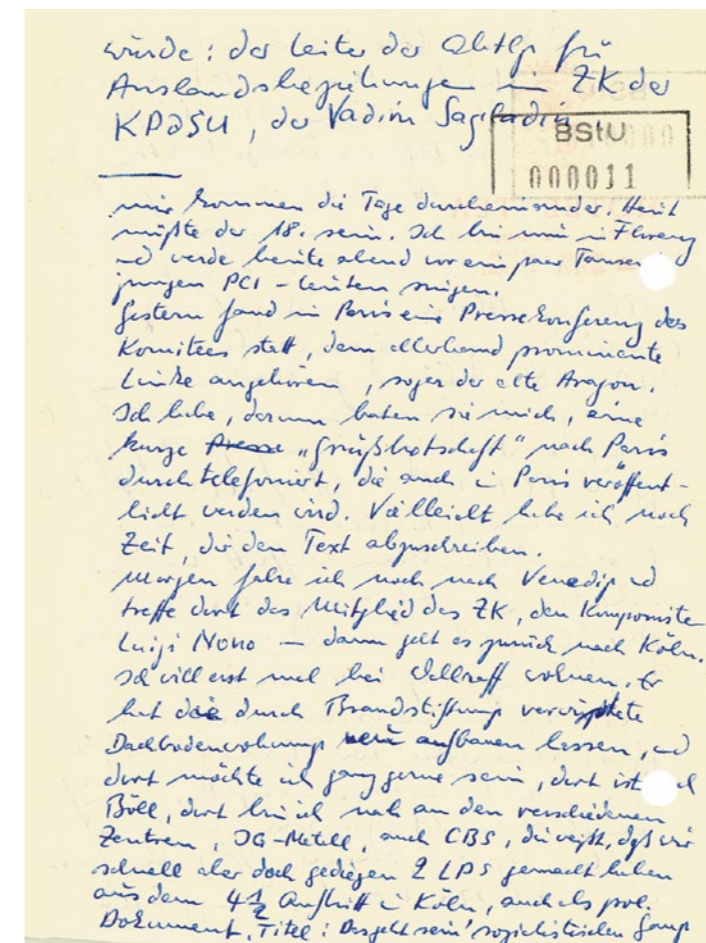 würde: der Leiter der Abtlg für
Auslandsbeziehungen im ZK der
KPdSU, der Vadim Sagladin
BStU
000011
mir kommen die Tage durcheinander. Heut
müßte der 18. sein. Ich bin nun in Florenz
und werde heute abend vor ein paar
jungen PCI-Leuten singen.
Gestern fand in Paris eine Pressekonferenz des
Komitees statt, dem allerhand prominente
Linke angehören, sogar der alte Aragon.
Ich habe, darum baten sie mich, eine
kurze Presse „Grußbotschaft“ nach Paris
durchtelefoniert, die auch in Paris veröffent-
licht werden wird. Vielleicht habe ich noch
Zeit, dir den Text abzuschreiben.
Morgen fahre ich noch nach Venedig und
treffe dort das Mitglied des ZK, den Komponisten
Luigi Nono — dann geht es zurück nach Köln.
Ich will erst mal bei Wallraff wohnen. Er
hat die durch Brandstiftung verwüstete
Dachbodenwohnung neu aufbauen lassen, und
dort möchte ich ganz gerne sein, dort ist
Böll, dort bin ich nah an den verschiedenen
Zentren, IG-Metall, auch CBS, du weißt, daß wir
schnell aber doch gediegen 2 LPs gemacht haben
aus dem 4½ Auftritt in Köln, auch als pol.
Dokument, Titel: Das geht sein' sozialistischen Gang